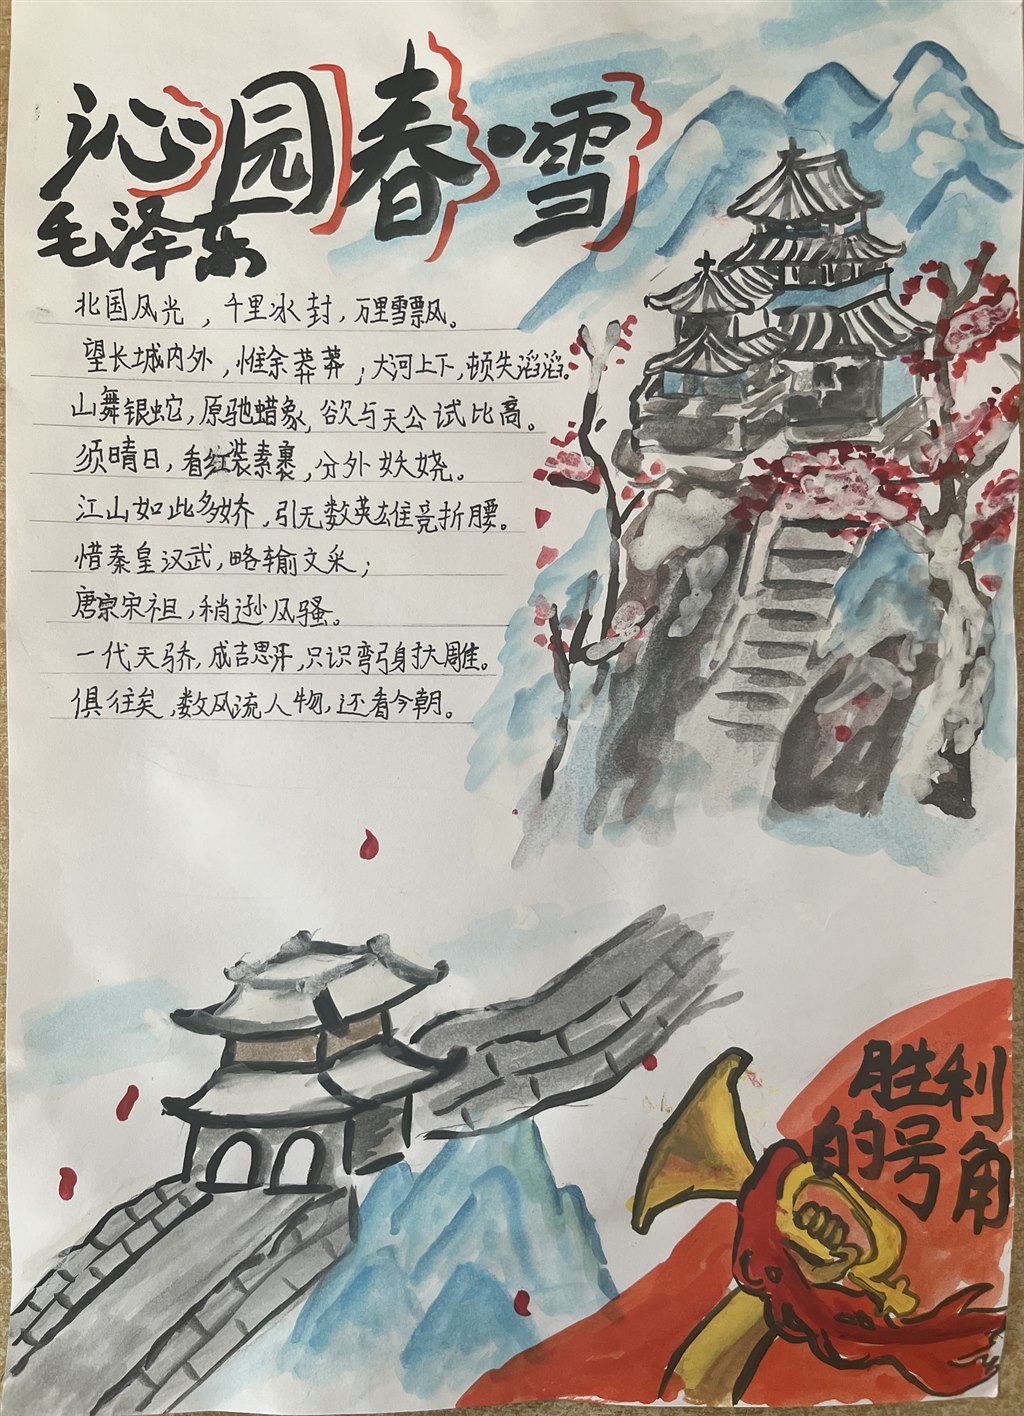 沁园春·雪
毛泽东
北国风光，千里冰封，万里雪飘。
望长城内外，惟余莽莽；大河上下，顿失滔滔。
山舞银蛇，原驰蜡象，欲与天公试比高。
须晴日，看红装素裹，分外妖娆。
江山如此多娇，引无数英雄竞折腰。
惜秦皇汉武，略输文采；
唐宗宋祖，稍逊风骚。
一代天骄，成吉思汗，只识弯弓射大雕。
俱往矣，数风流人物，还看今朝。
胜利
的号角